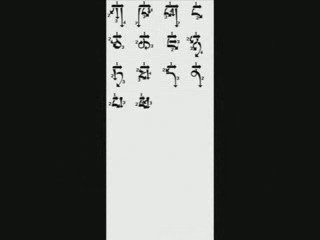 ཀ ཁ ག ང
ཅ ཆ ཇ ཉ
ཏ ཐ ད ན
པ ཕ